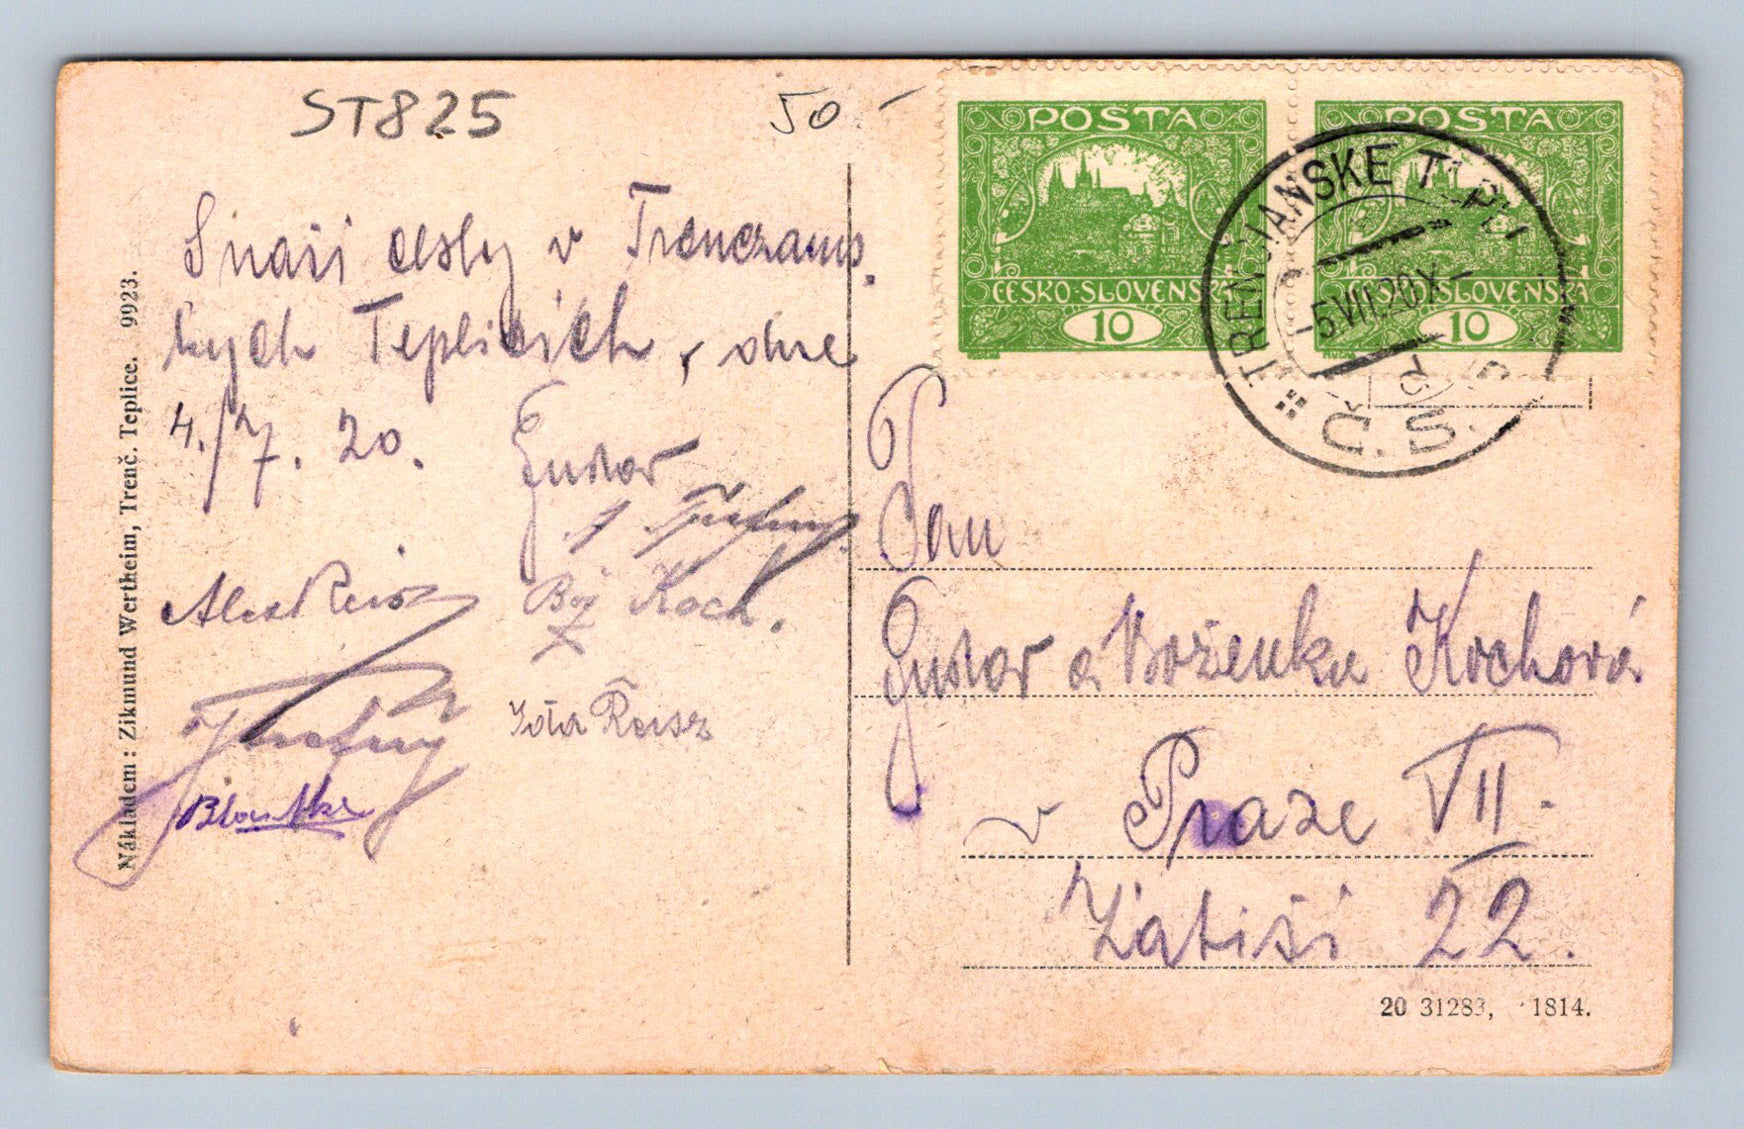 ST825
50.-
POSTA
ČESKO-SLOVENSKÁ
10
POSTA
ČESKO-SLOVENSKÁ
10
TRENČIANSKE TEPLI
-5.VII.20.X-
Č.S.P.
v Trenczans.
kých Teplicích, dne
4./7. 20.
Gustav
Alex Reisz
Bož Koch.
Reisz
Blanka
Nákladem: Zikmund Wertheim, Trenč. Teplice. 9923.
Pan
Gustav a Boženka Kochová
v Praze VII.
Zátiší 22.
20 31283, 1814.